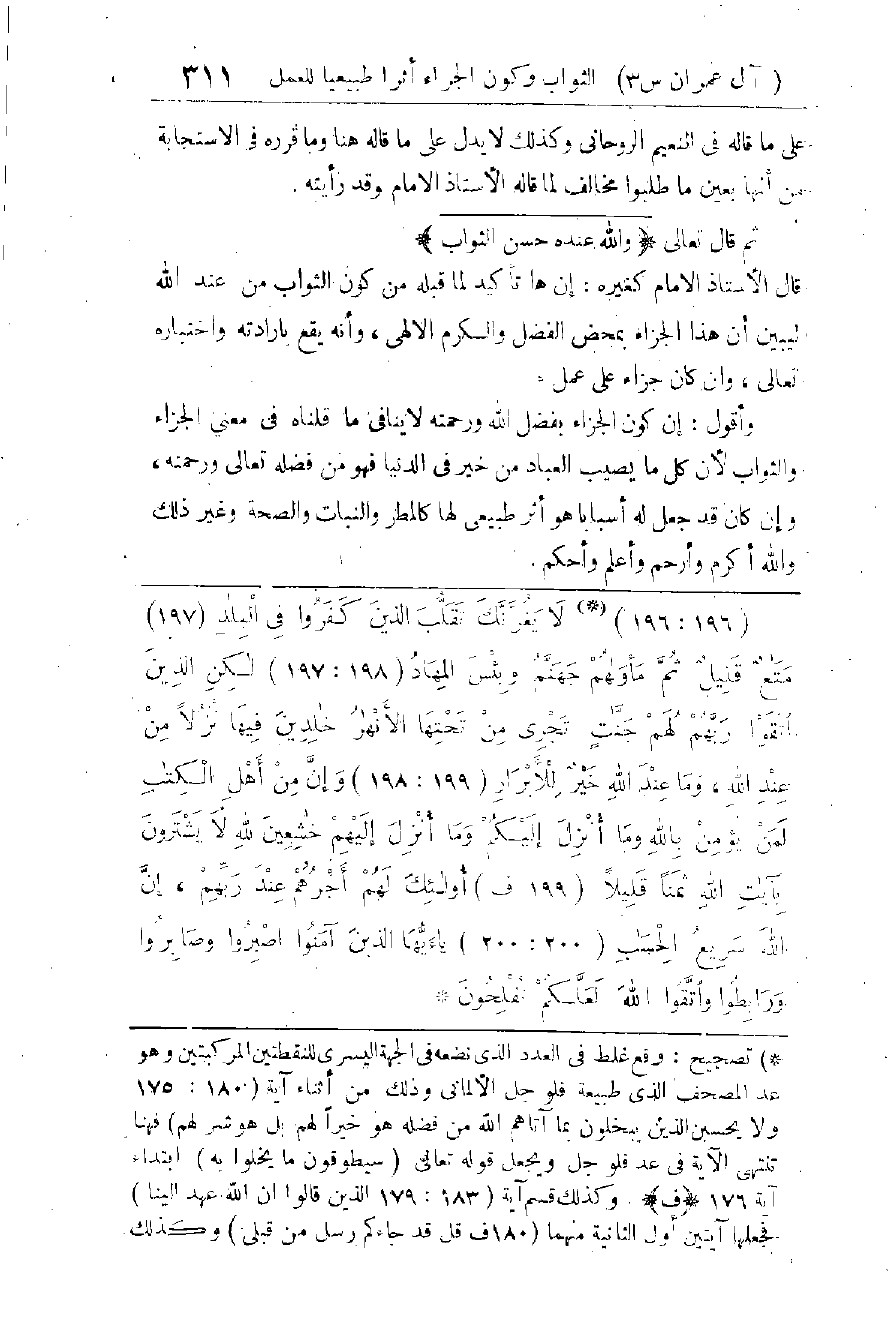 ( آل عمران س٣) الثواب وكون الجزاء أثرا طبيعيا للعمل ٣١١
على ما قاله فى النعيم الروحانى وكذلك لا يدل على ما قاله هنا وما قرره فى الاستجابة
من أنها بعين ما طلبوا مخالف لما قاله الأستاذ الامام وقد رأيته .
ثم قال تعالى ﴿ والله عنده حسن الثواب ﴾
قال الأستاذ الامام كغيره : إن ها تأكيد لما قبله من كون الثواب من عند الله
ليبين أن هذا الجزاء بمحض الفضل والكرم الالهى ، وأنه يقع بارادته واختياره
تعالى ، وان كان جزاء على عمل .
وأقول : إن كون الجزاء بفضل الله ورحمته لا ينافى ما قلناه فى معنى الجزاء
والثواب لأن كل ما يصيب العباد من خير فى الدنيا فهو من فضله تعالى ورحمته ،
وإن كان قد جعل له أسبابا هو أثر طبيعى لها كالمطر والنبات والصحة وغير ذلك
والله أكرم وأرحم وأعلم وأحكم .
(١٩٦ : ١٩٦ ) (*) لَا يَغُرَّنَّكَ تَقَلُّبَ الذينَ كَفَرُوا فِى الْبِلٰدِ (١٩٧)
مَتٰعٌ قَلِيلٌ ثُمَّ مَأْوٰهُمْ جَهَنَّمُ وبِئْسَ المِهَادُ ( ١٩٨ : ١٩٧ ) لٰكِنِ الذِينَ
اتَّقَوْا رَبَّهُمْ لَهُمْ جَنّٰتٍ تَجْرِى مِنْ تَحْتِهَا الأَنْهٰرُ خٰلِدِينَ فِيهَا نُزُلاً مِنْ
عِنْدِ اللهِ ، وَمَا عِنْدَ اللهِ خَيْرٌ لِلْأَبْرَارِ ( ١٩٩ : ١٩٨ ) وَإِنَّ مِنْ أَهْلِ الْكِتٰبِ
لَمَنْ يُؤْمِنُ بِاللهِ ومَا أُنْزِلَ إِلَيْكُمْ وَمَا أُنْزِلَ إِلَيْهِمْ خٰشِعِينَ للهِ لَا يَشْتَرُونَ
بِآيٰتِ اللهِ ثَمَناً قَلِيلاً ( ١٩٩ ف ) أُولٰئِكَ لَهُمْ أَجْرُهُمْ عِنْدَ رَبِّهِمْ ، إِنَّ
اللهَ سَرِيعُ الْحِسَابِ ( ٢٠٠ : ٢٠٠ ) يٰأَيُّهَا الذينَ آمَنُوا اصْبِرُوا وصَابِرُوا
وَرَابِطُوا وَاتَّقُوا اللهَ لَعَلَّكُمْ تُفْلِحُونَ *
*) تصحيح : وقع غلط فى العدد الذى نضعه فى الجهة اليسرى للنقطتين المركبتين وهو
عد المصحف الذى طبعه فلوجل الألمانى وذلك من أثناء آية (١٨٠ : ١٧٥
ولا يحسبن الذين يبخلون بما آتاهم الله من فضله هو خيراً لهم بل هو شر لهم) فهنا
تنتهى الآية فى عد فلوجل ويجعل قوله تعالى ( سيطوقون ما بخلوا به ) ابتداء
آية ١٧٦ ﴿ف﴾ . وكذلك قسم آية ( ١٨٣ : ١٧٩ الذين قالوا ان الله عهد الينا )
فجعلها آيتين أول الثانية منهما (١٨٠ف قل قد جاءكم رسل من قبلى ) وكذلك